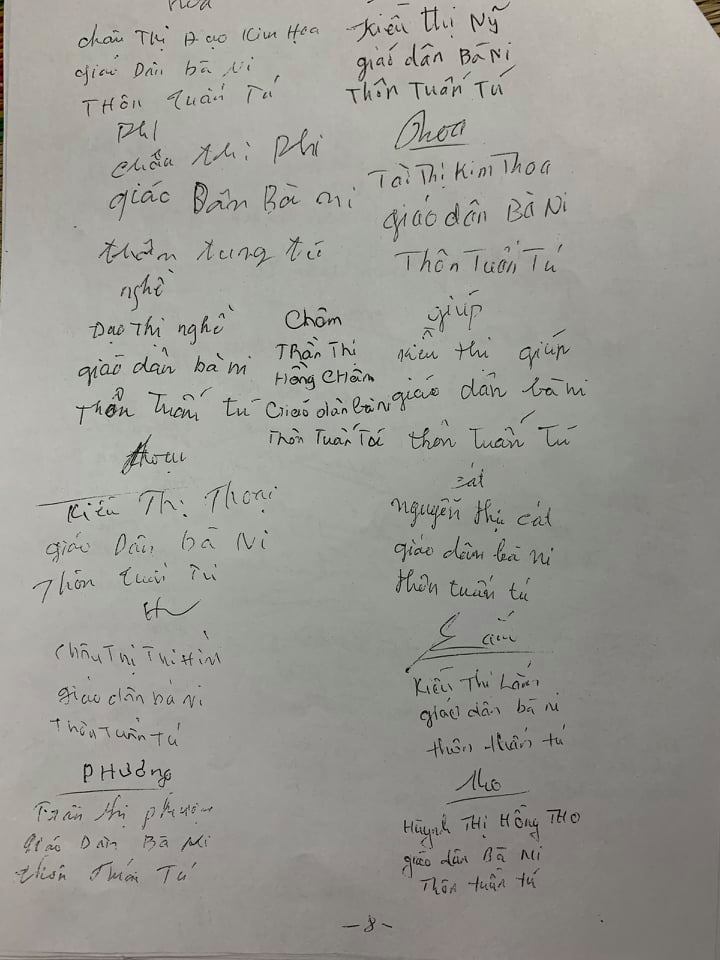 Hoa
Châu Thị Đạo Kim Hoa
giáo Dân bà Ni
THôn Tuấn Tú
Kiều Thị Nỹ
giáo dân Bà Ni
Thôn Tuấn Tú
PhI
Châu thị Phi
giáo Dân Bà ni
thôn tung tú
Thoa
Tài Thị Kim Thoa
giáo dân Bà Ni
Thôn Tuấn Tú
nghề
Đạo Thị nghề
giáo dân bà ni
Thôn Tuấn tú
Chôm
TRần Thị
Hồng CHâm
Giáo dân bà ni
Thôn Tuấn Tú
giúp
Kiều thị giúp
giáo dân bà ni
thôn Tuấn Tú
Thoại
Kiều Thị Thoại
giáo Dân bà Ni
Thôn Tuấn Tú
cát
nguyễn thị cát
giáo dân bà ni
thôn tuấn tú
Châu Thị
giáo dân bà ni
Thôn Tuấn Tú
Kiều Thị
giáo dân bà ni
thôn tuấn tú
PHƯơng
Trần thị phương
giáo Dân Bà Ni
thôn Tuấn Tú
Tho
Huỳnh THị HỒng THO
giáo dân Bà Ni
Thôn tuấn tú
-8-